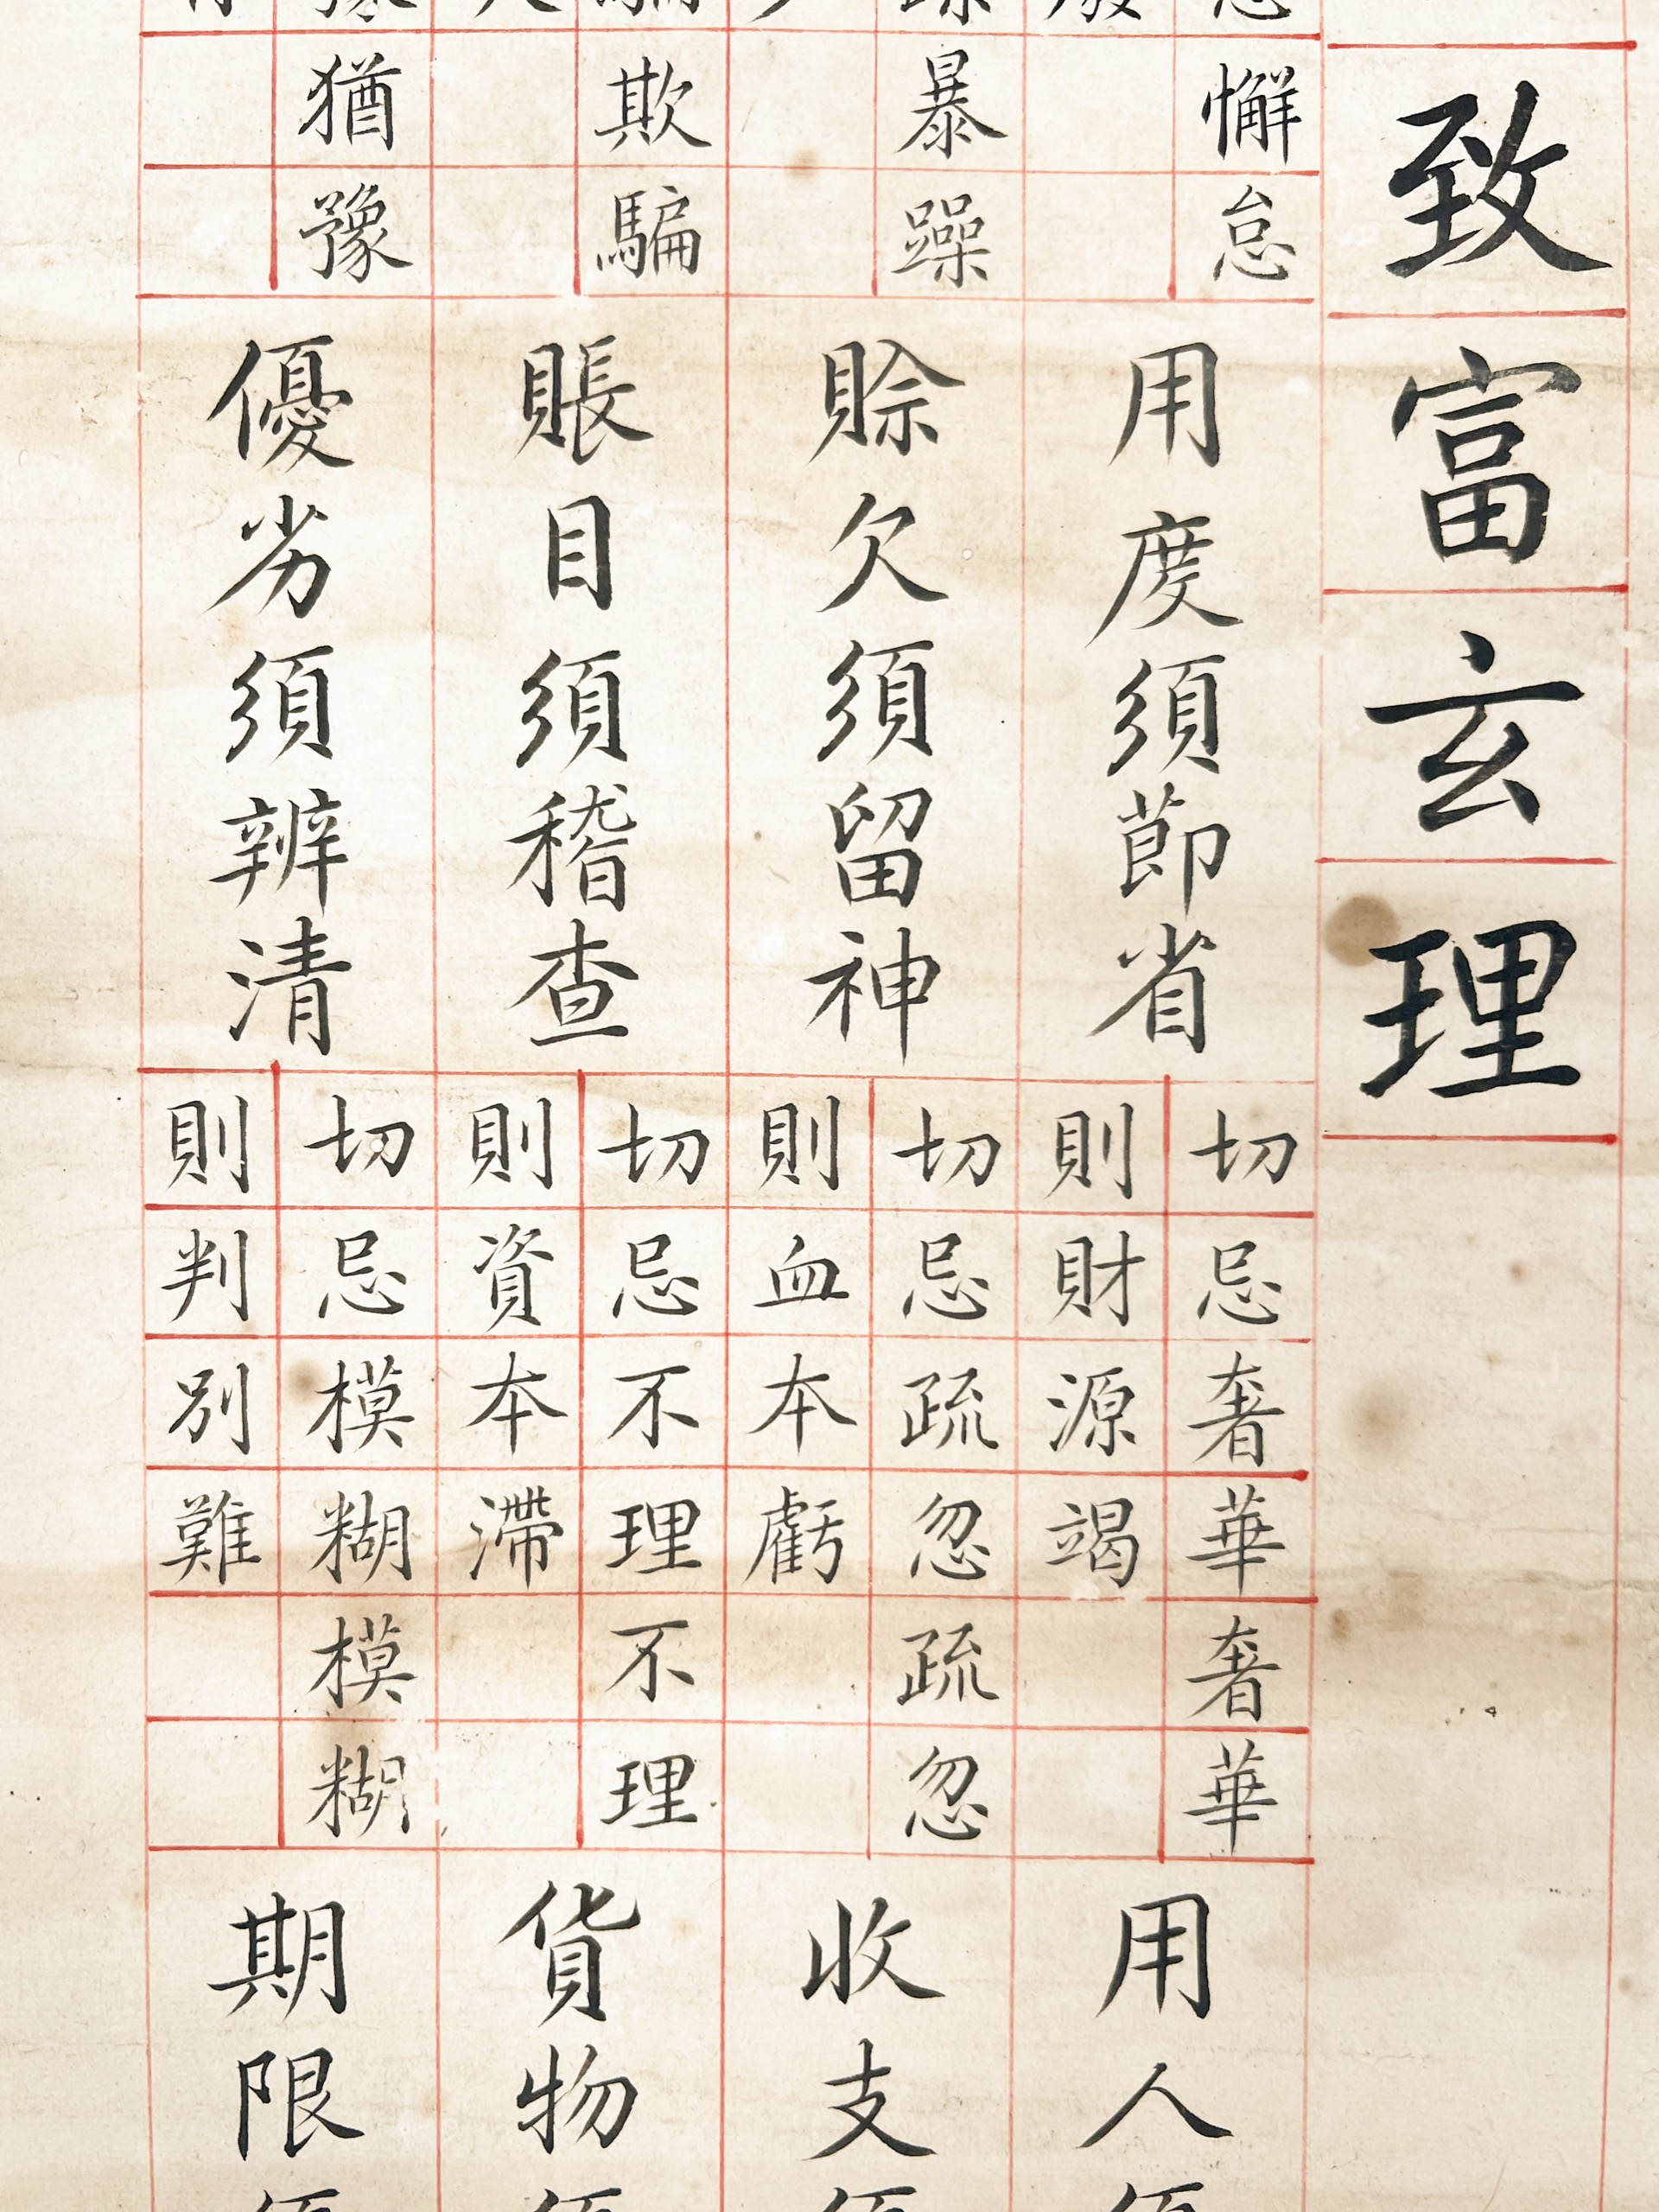 致富玄理
懈怠
用度須節省
切忌奢華奢華
則財源竭
用人
暴躁
賒欠須留神
切忌疏忽疏忽
則血本虧
收支
欺騙
賬目須稽查
切忌不理不理
則資本滯
貨物
猶豫
優劣須辨清
切忌模糊模糊
則判別難
期限